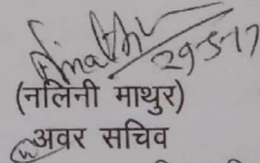 29-5-17
(नलिनी माथुर)
अवर सचिव